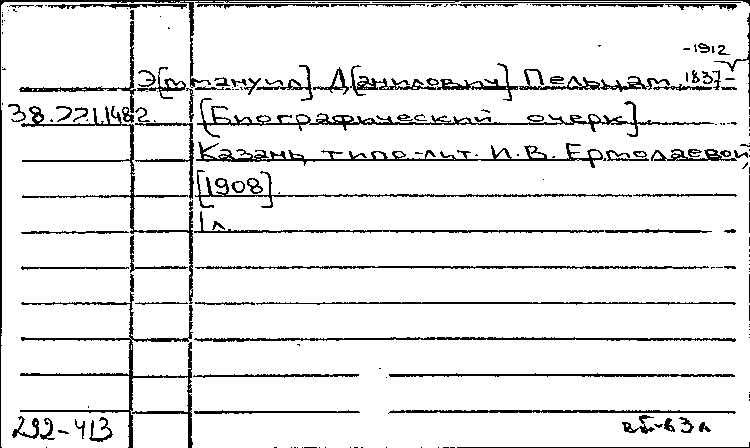 -1912
Э[ммануил] Д[анилович] Пельцам, 1837-
38.221.1482. [Биографический очерк].
Казань, типо-лит. И.В. Ермолаевой,
[1908].
1 л.
292-413